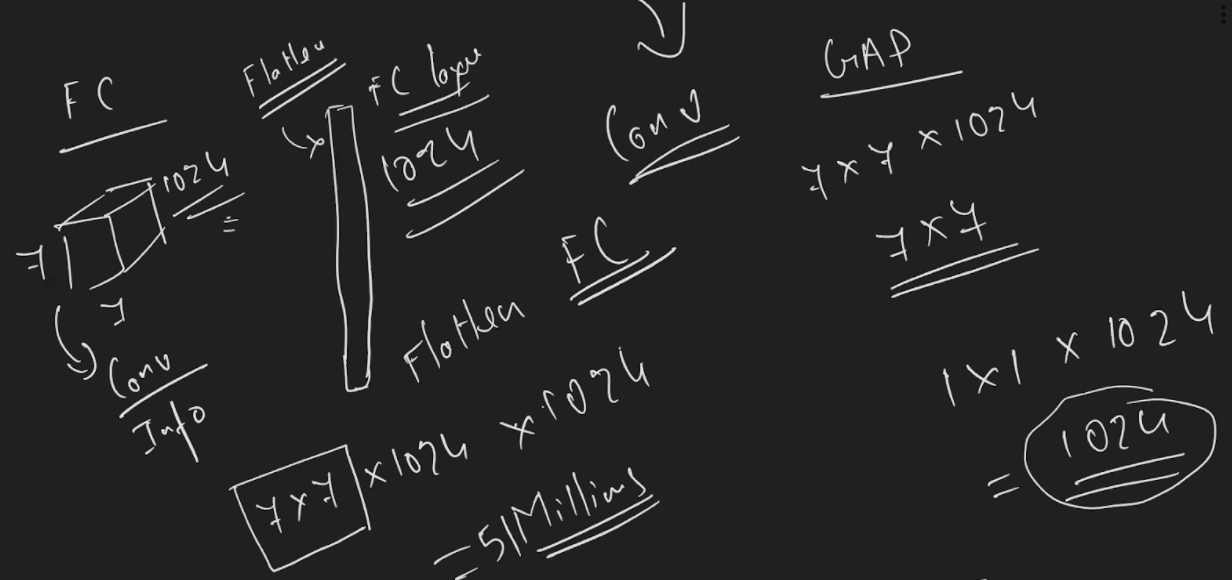 FC
1024
7
7
Conv
Info
Flatten
FC layer
1024
Conv
FC
Flatten
7x7 x 1024 x 1024
= 51 Millions
GAP
7 x 7 x 1024
7 x 7
1 x 1 x 1024
= 1024